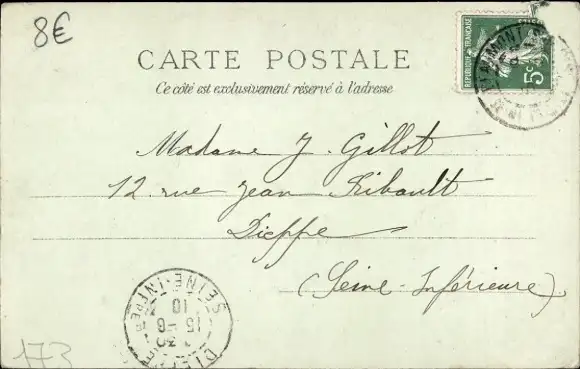 8€
CARTE POSTALE
Ce côté est exclusivement réservé à l'adresse
REPUBLIQUE FRANÇAISE
POSTES
5c
Madame J. Gillot
12. rue Jean Ribault
Dieppe
(Seine-Inférieure)
SEINE-INFRE
10
15-6
30
DIEPPE
173